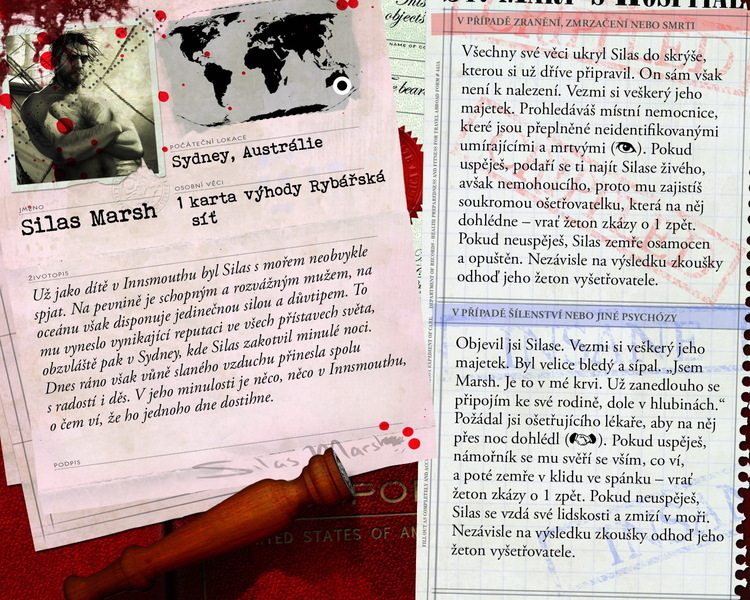 POČÁTEČNÍ LOKACE
Sydney, Austrálie
OSOBNÍ VĚCI
1 karta výhody Rybářská
síť
JMÉNO
Silas Marsh
ŽIVOTOPIS
Už jako dítě v Innsmouthu byl Silas s mořem neobvykle
spjat. Na pevnině je schopným a rozvážným mužem, na
oceánu však disponuje jedinečnou silou a důvtipem. To
mu vyneslo vynikající reputaci ve všech přístavech světa,
obzvláště pak v Sydney, kde Silas zakotvil minulé noci.
Dnes ráno však vůně slaného vzduchu přinesla spolu
s radostí i děs. V jeho minulosti je něco, něco v Innsmouthu,
o čem ví, že ho jednoho dne dostihne.
PODPIS
Silas Marsh
UNITED STATES OF AM
objects
V PŘÍPADĚ ZRANĚNÍ, ZMRZAČENÍ NEBO SMRTI
Všechny své věci ukryl Silas do skrýše,
kterou si už dříve připravil. On sám však
není k nalezení. Vezmi si veškerý jeho
majetek. Prohledáváš místní nemocnice,
které jsou přeplněné neidentifikovanými
umírajícími a mrtvými ( ). Pokud
uspěješ, podaří se ti najít Silase živého,
avšak nemohoucího, proto mu zajistíš
soukromou ošetřovatelku, která na něj
dohlédne – vrať žeton zkázy o 1 zpět.
Pokud neuspěješ, Silas zemře osamocen
a opuštěn. Nezávisle na výsledku zkoušky
odhoď jeho žeton vyšetřovatele.
V PŘÍPADĚ ŠÍLENSTVÍ NEBO JINÉ PSYCHÓZY
Objevil jsi Silase. Vezmi si veškerý jeho
majetek. Byl velice bledý a sípal. „Jsem
Marsh. Je to v mé krvi. Už zanedlouho se
připojím ke své rodině, dole v hlubinách.“
Požádal jsi ošetřujícího lékaře, aby na něj
přes noc dohlédl ( ). Pokud uspěješ,
námořník se mu svěří se vším, co ví,
a poté zemře v klidu ve spánku – vrať
žeton zkázy o 1 zpět. Pokud neuspěješ,
Silas se vzdá své lidskosti a zmizí v moři.
Nezávisle na výsledku zkoušky odhoď jeho
žeton vyšetřovatele.